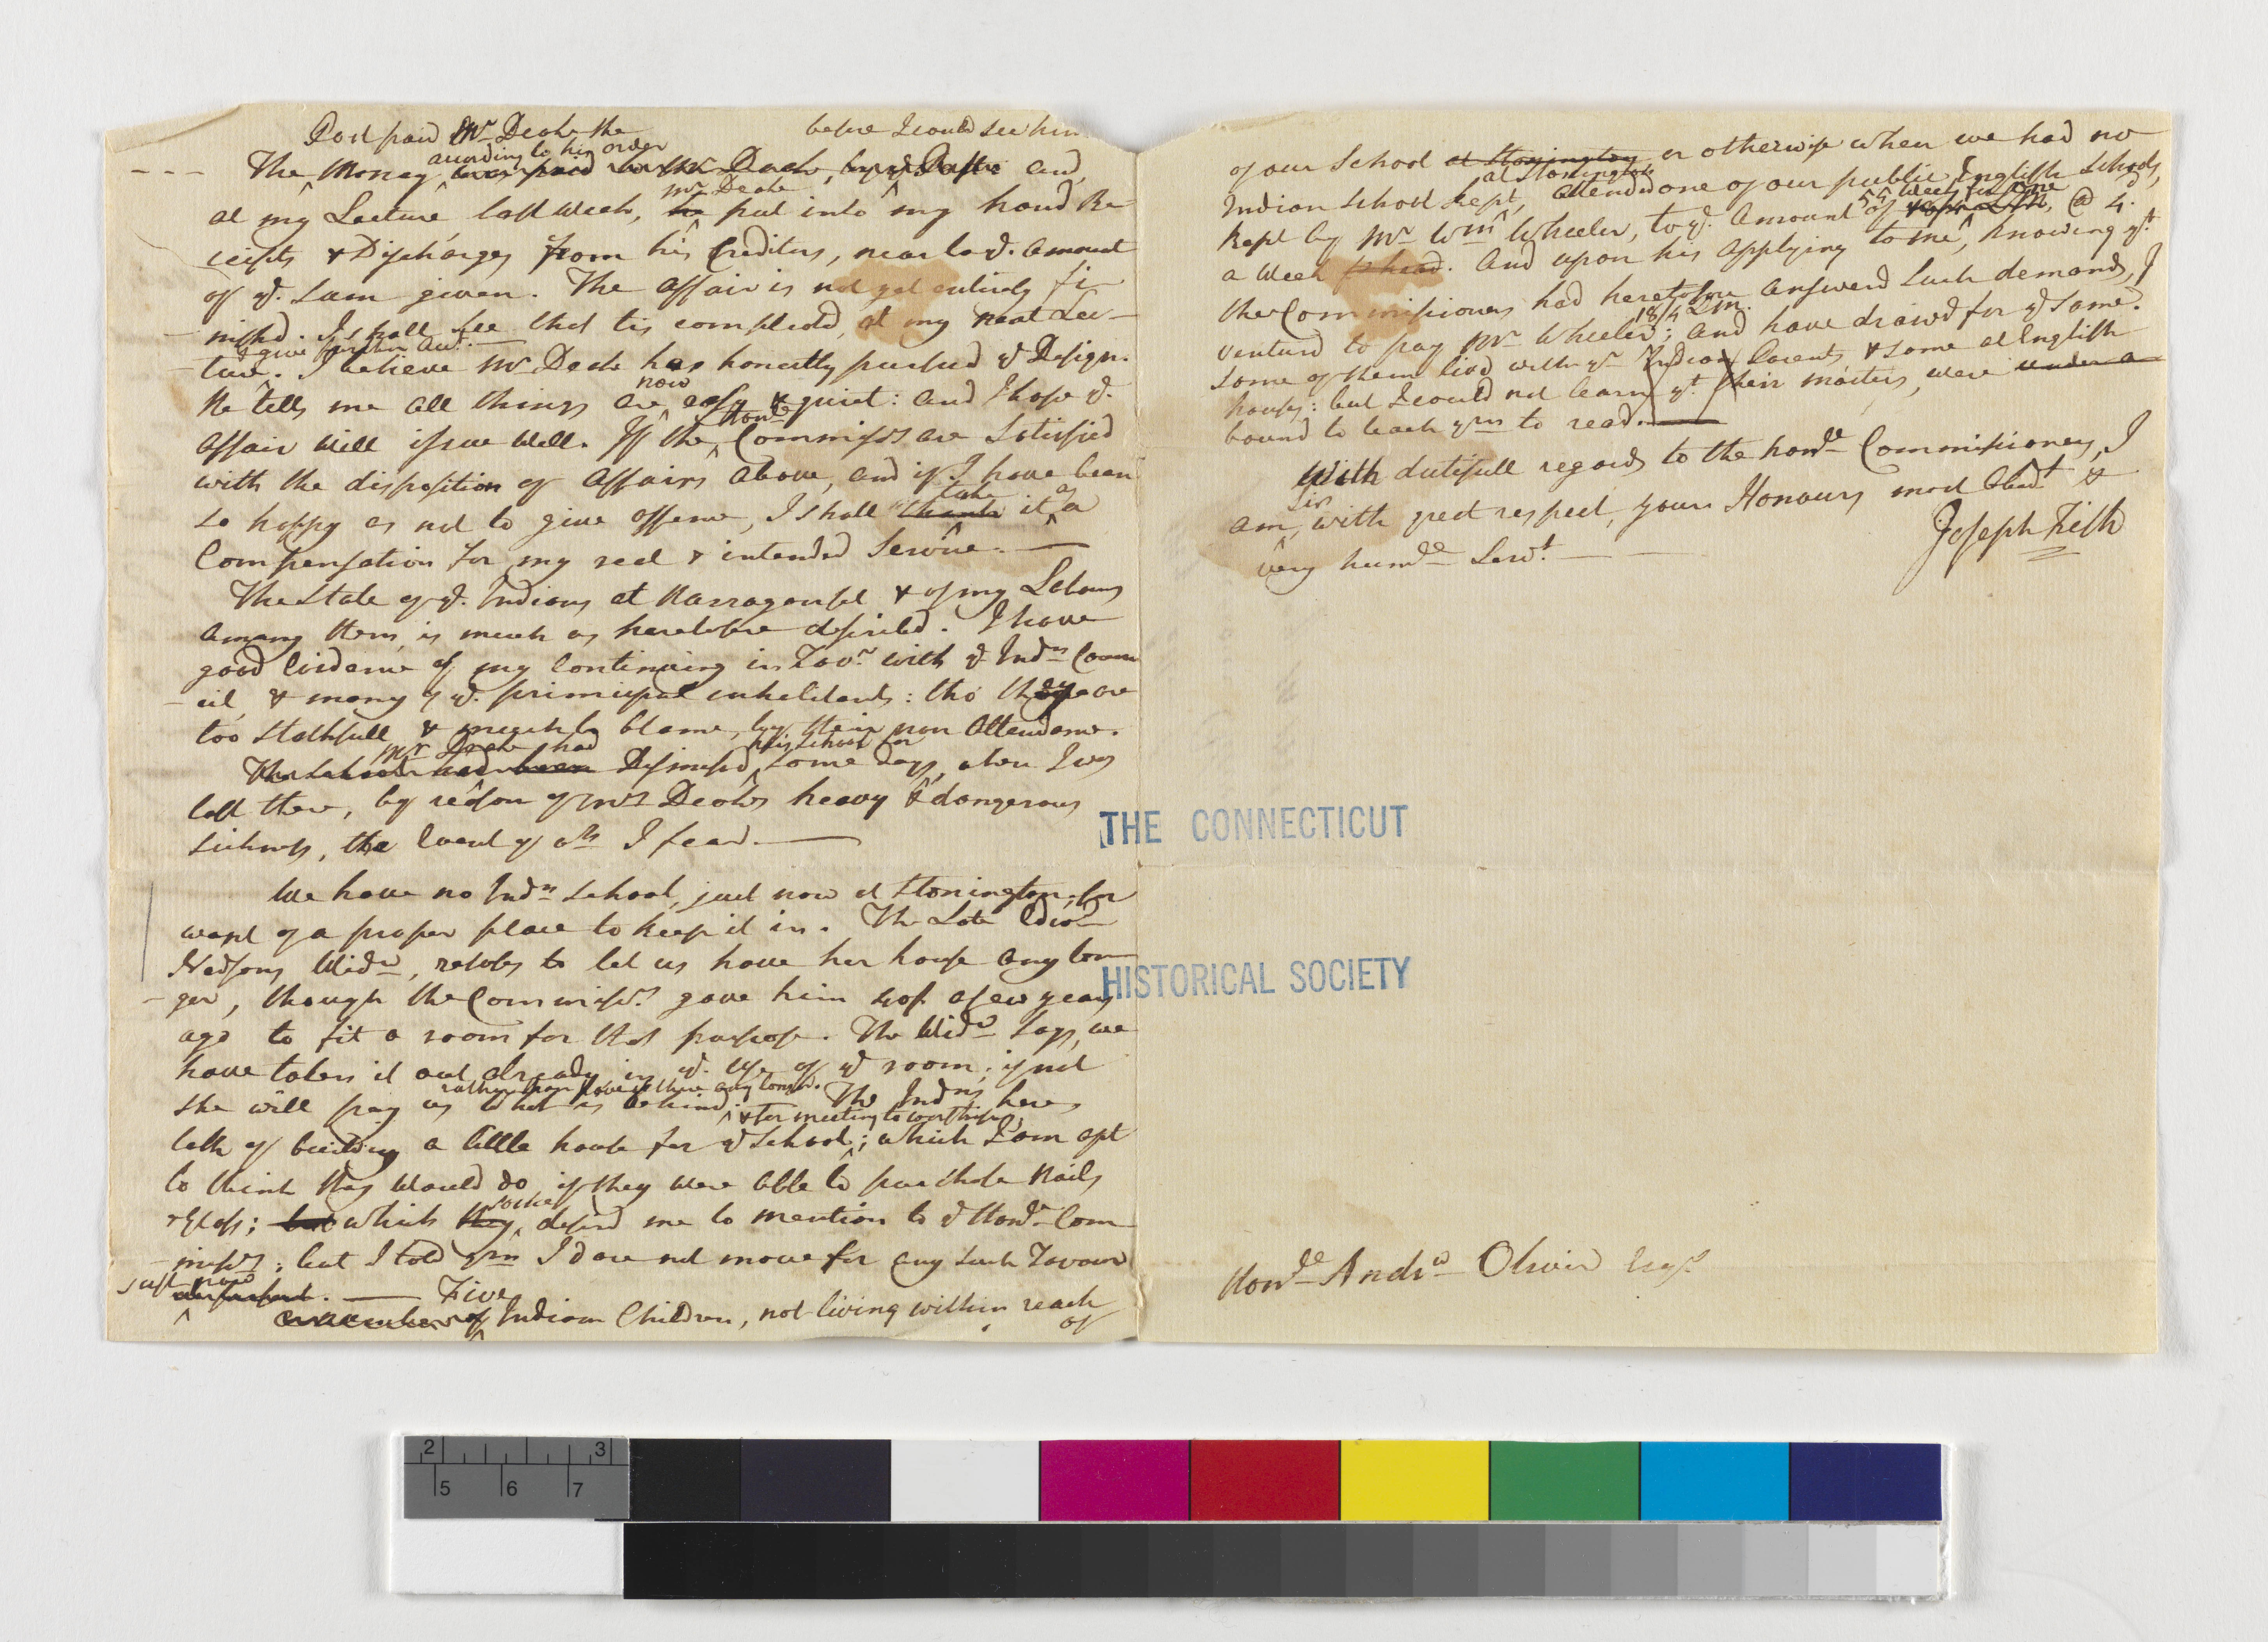 paid Mr Deake the before I could see him
according to his order
The Money was paid to Mr Deake, by and,
Mr Deake
at my Lecture last week, he put into my hand Re-
ceipts & Discharges from his Creditors, near to ye. amount
of ye. Sum given. The affair is not yet entirely fi-
nishd. I shall see that tis compleated, at my next Lec-
& give further Acct.
ture. I believe Mr Deake has honestly pursued ye Design.
now
He tells me all things are easy & quiet: and I hope ye.
Honle
affair will issue well. If the Commissrs are Satisfied
with the disposition of affairs above, and if I have been
take as
so happy as not to give offence, I shall thank it a
Compensation for my real & intended Service.
The State of ye. Indians at Narraganset & of my Labours
among them, is much as heretofore described. I have
good Evidence of my Continuing in Favr with ye Indn Coun
-cil, & many of ye. principal inhabitants: tho' they are
too slothfull & much to blame, by their non Attendance.
Mr Deake had his School for
The School had been Dismissd, some days, when I was
last there, by reason of Mrs Deake's heavy & dangerous
sickness, the Event of wh I fear.
We have no Indn School, just now at Stonington, for
want of a proper place to keep it in. The Late Edwd
Nedsons Widw, refuses to let us have her house any lon
-ger, though the Commissrs gave him a few years
ago to fit a room for that purpose. The Widw says, we
have taken it out already in ye. use of ye room; if not
rather than have it there any longer.
she will pay us what is behind. The Indns here,
& for meeting to worship,
talk of building a little house for ye School; which I am apt
to think they would do, if they were able to purchase Nails
some
& Glass; but which they, desired me to mention to ye Honle Com
-missrs; but I told ym I dare not move for any such Favour
just now
at present. Five
a number of Indian Children, not living within reach
of
of our School at Stonington, or otherwise when we had no
at Stonington
Indian School kept, attended one of our public English Schools,
54 weeks in
kept by Mr Wm Wheeler, to ye. Amount of @ 4d.
a week p head. And upon his applying to me, knowing yt
the Commissioners had heretofore answerd such demands, I
18/ LM.
ventured to pay Mr Wheeler; and have drawd for ye Same.
some of them livd with yr Indian Parents & some at English
houses: but I could not learn yt their masters, were under a
bound to teach ym to read.
With dutifull regards to the honle Commissioners, I
Sir
am, with great respect, your Honours most Obedt &
very humle Servt.
Joseph Fish
THE CONNECTICUT
HISTORICAL SOCIETY
Honle Andrw Oliver Esqr